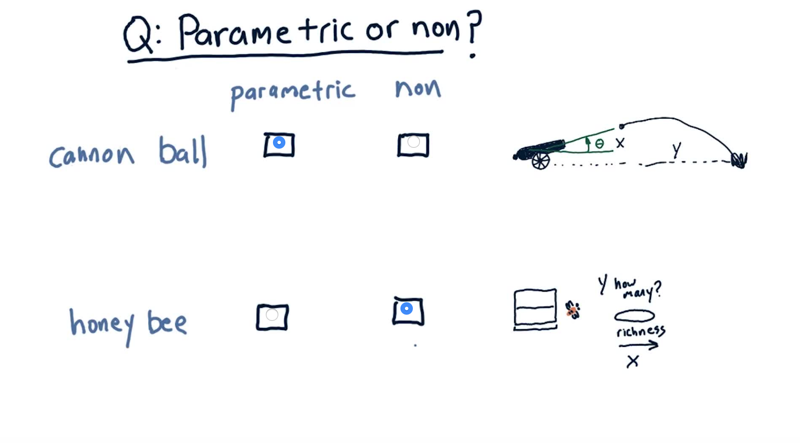 Q: Parametric or non?
parametric non
cannon ball
θ x y
honey bee
Y how many?
richness
X